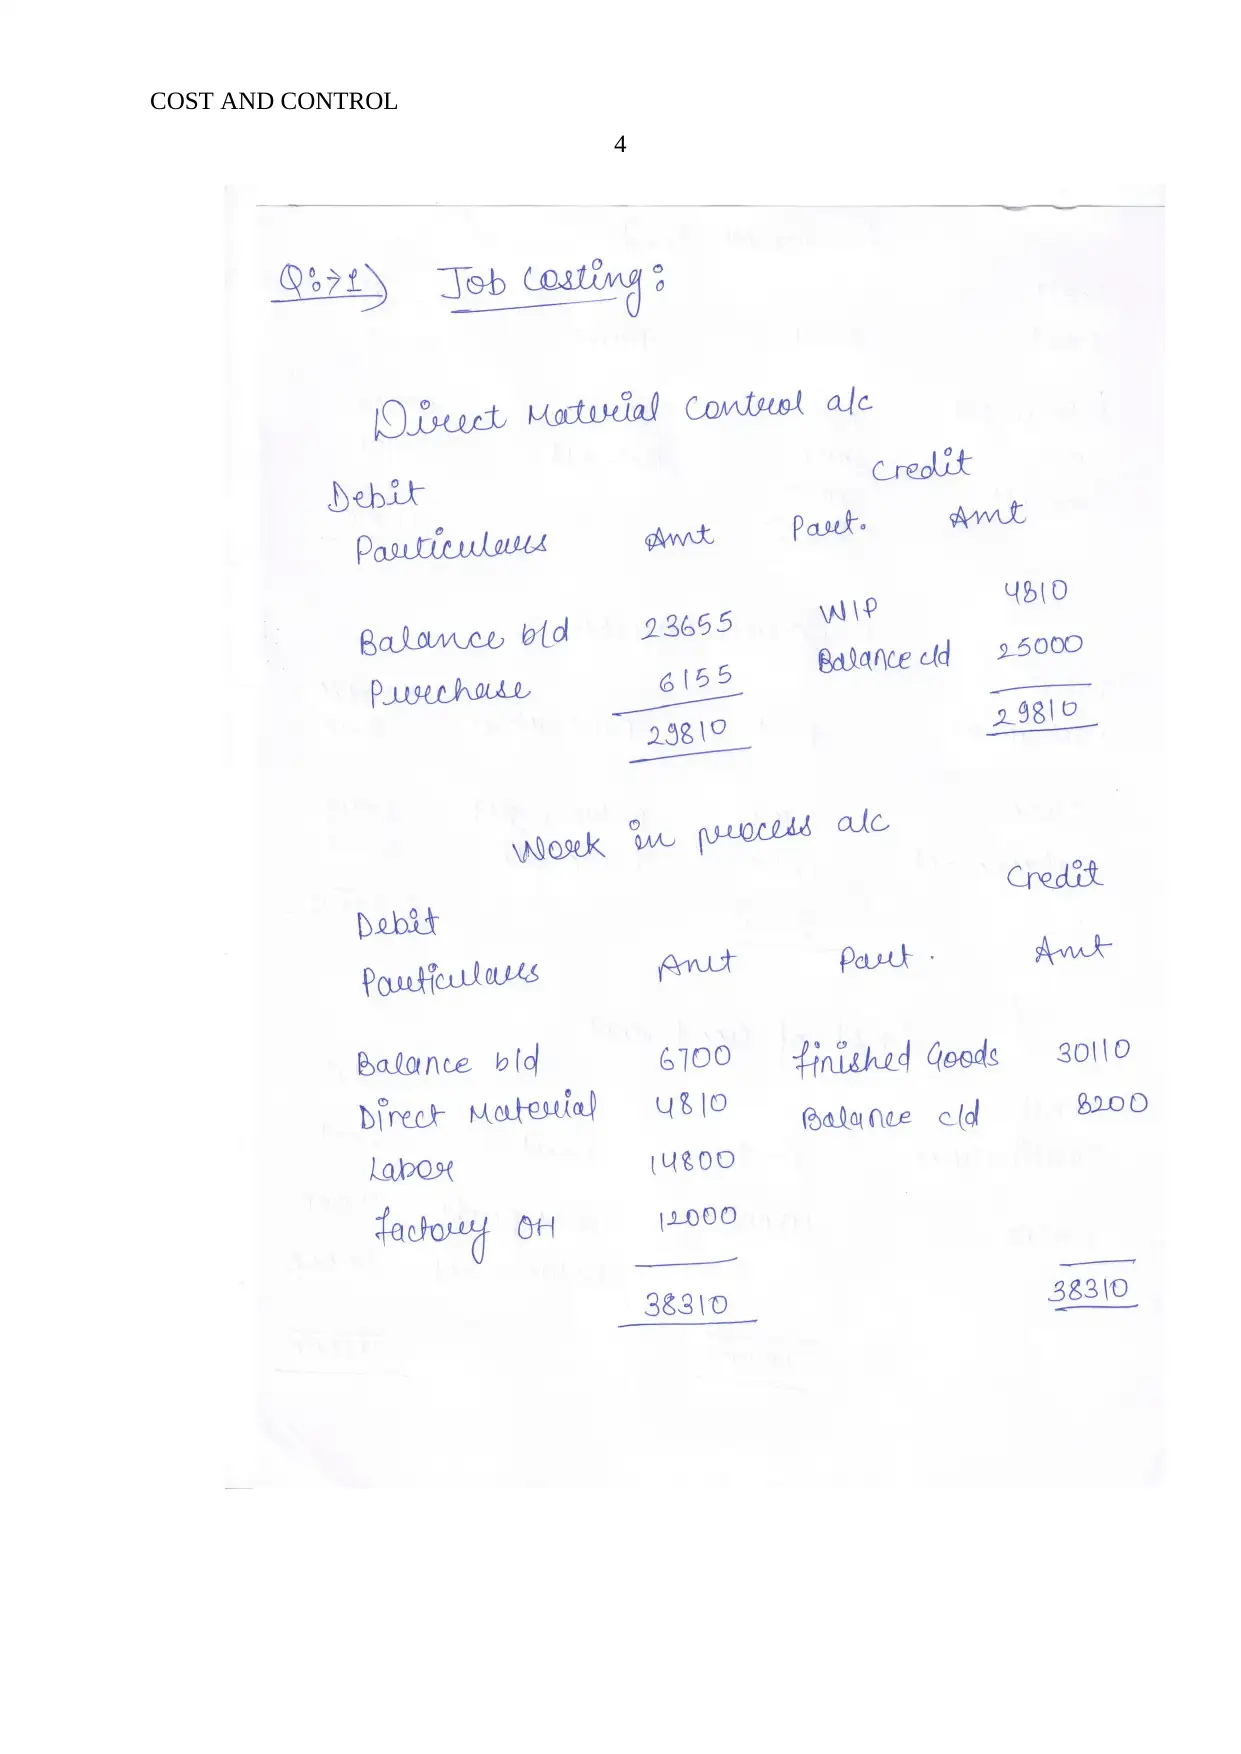 COST AND CONTROL
4
Q:→1) Job Costing:
Direct Material Control a/c
Debit Credit
Particulars Amt Part. Amt
Balance b/d 23655 WIP 4810
Purchase 6155 Balance c/d 25000
29810 29810
Work in process a/c
Debit Credit
Particulars Amt Part. Amt
Balance b/d 6700 finished Goods 30110
Direct Material 4810 Balance c/d 8200
Labor 14800
factory OH 12000
38310 38310